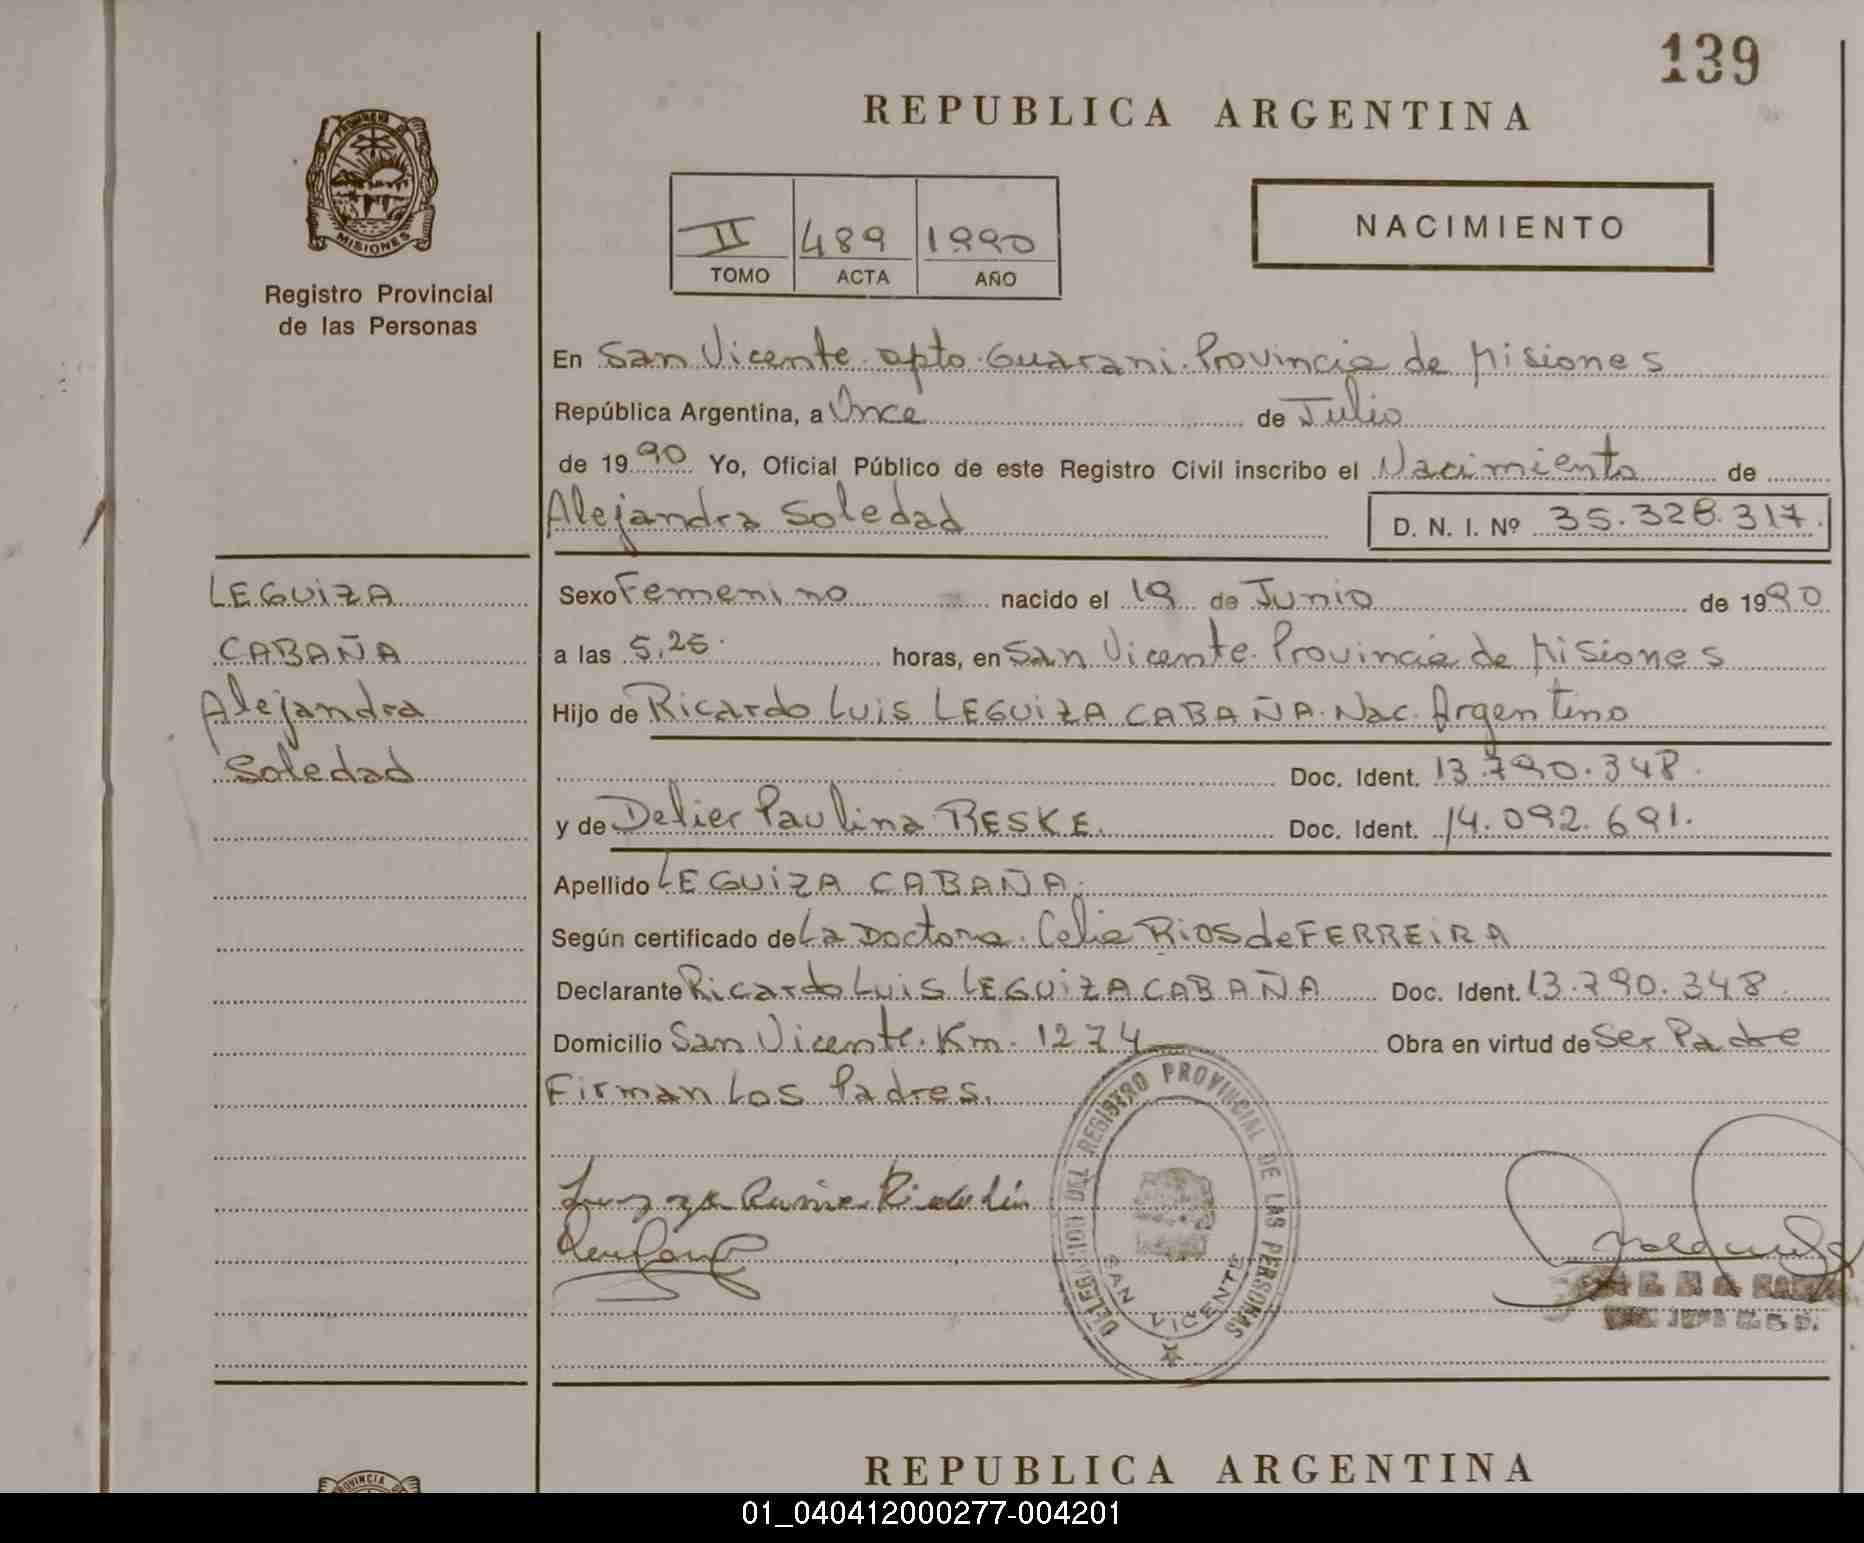 139
REPUBLICA ARGENTINA
PROVINCIA DE
MISIONES
Registro Provincial
de las Personas
II 489 1990
TOMO ACTA AÑO
NACIMIENTO
En San Vicente. dpto. Guarani. Provincia de Misiones
República Argentina, a Once de Julio
de 1990 Yo, Oficial Público de este Registro Civil inscribo el Nacimiento de
Alejandra Soledad D. N. I. Nº 35.328.317.
LEGUIZA
CABAÑA
Alejandra
Soledad
Sexo Femenino nacido el 19 de Junio de 1990
a las 5,25. horas, en San Vicente. Provincia de Misiones
Hijo de Ricardo Luis LEGUIZA CABAÑA. Nac. Argentino
Doc. Ident. 13.790.348.
y de Delier Paulina RESKE. Doc. Ident. 14.092.691.
Apellido LEGUIZA CABAÑA.
Según certificado de La Doctora. Celia RIOS de FERREIRA
Declarante Ricardo Luis LEGUIZA CABAÑA Doc. Ident. 13.790.348.
Domicilio San Vicente. Km. 1274 Obra en virtud de Ser Padre
Firman Los Padres.
DELEGACION DEL REGISTRO PROVINCIAL DE LAS PERSONAS
SAN VICENTE
REPUBLICA ARGENTINA
PROVINCIA
01_040412000277-004201